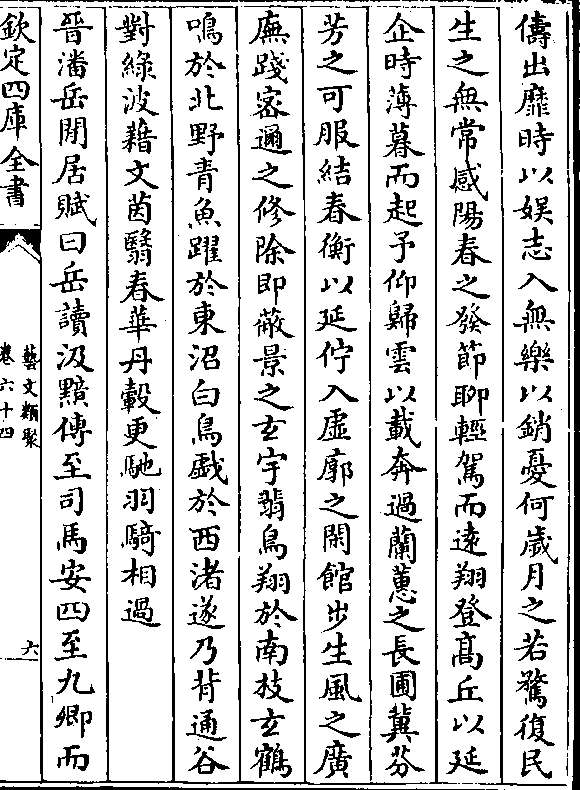 儔出靡時以娛志入無樂以銷憂何歲月之若騖復民
生之無常感陽春之發節聊輕駕而遠翔登高丘以延
企時薄暮而起予仰歸雲以載奔過蘭蕙之長圃冀芬
芳之可服結春衡以延佇入虛廓之閑館步生風之廣
廡踐密邇之修除即蔽景之玄宇翡鳥翔於南枝玄鶴
鳴於北野青魚躍於東沼白鳥戲於西渚遂乃背通谷
對綠波藉文茵翳春華丹轂更馳羽騎相過
晉潘岳閒居賦曰岳讀汲黯傳至司馬安四至九卿而
欽定四庫全書
藝文類聚
卷六十四
六